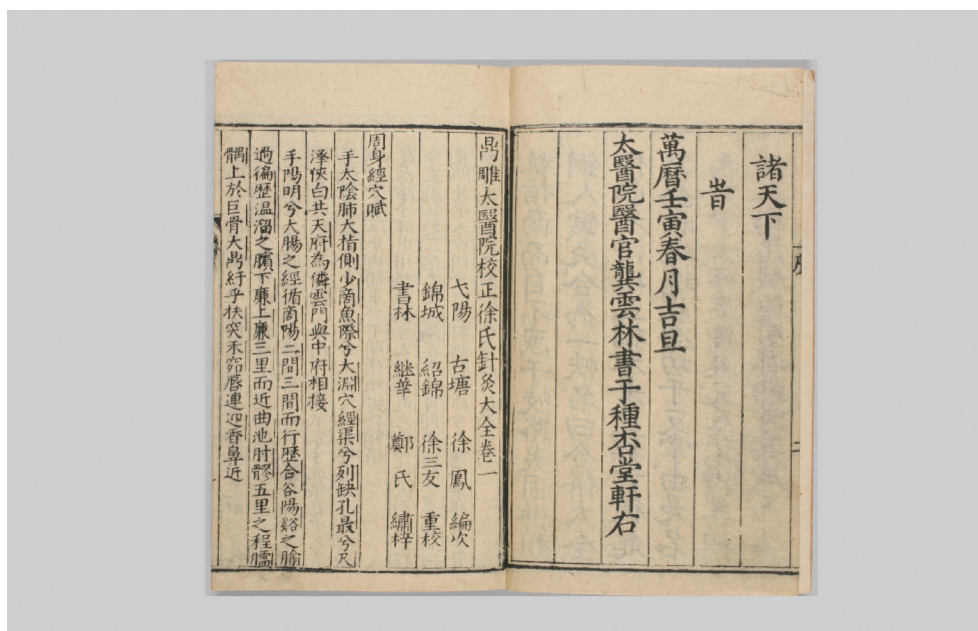 諸天下
旹
萬曆壬寅春月吉旦
太醫院醫官龔雲林書于種杏堂軒右
序
鼎雕太醫院校正徐氏針灸大全卷一
弋陽 古塘 徐鳳 編次
錦城 紹錦 徐三友 重校
書林 継華 鄭氏 繡梓
周身經穴賦
手太陰肺大指側少商魚際兮大淵穴經渠兮列缺孔最兮尺
澤俠白共天府為隣雲門與中府相接
手陽明兮大腸之經循商陽二間三間而行歷合谷陽谿之腧
過徧歷温溜之臏下廉上廉三里而近曲池肘髎五里之程臑
髃上於巨骨大鼎紆乎扶突禾窌唇連迎香鼻近